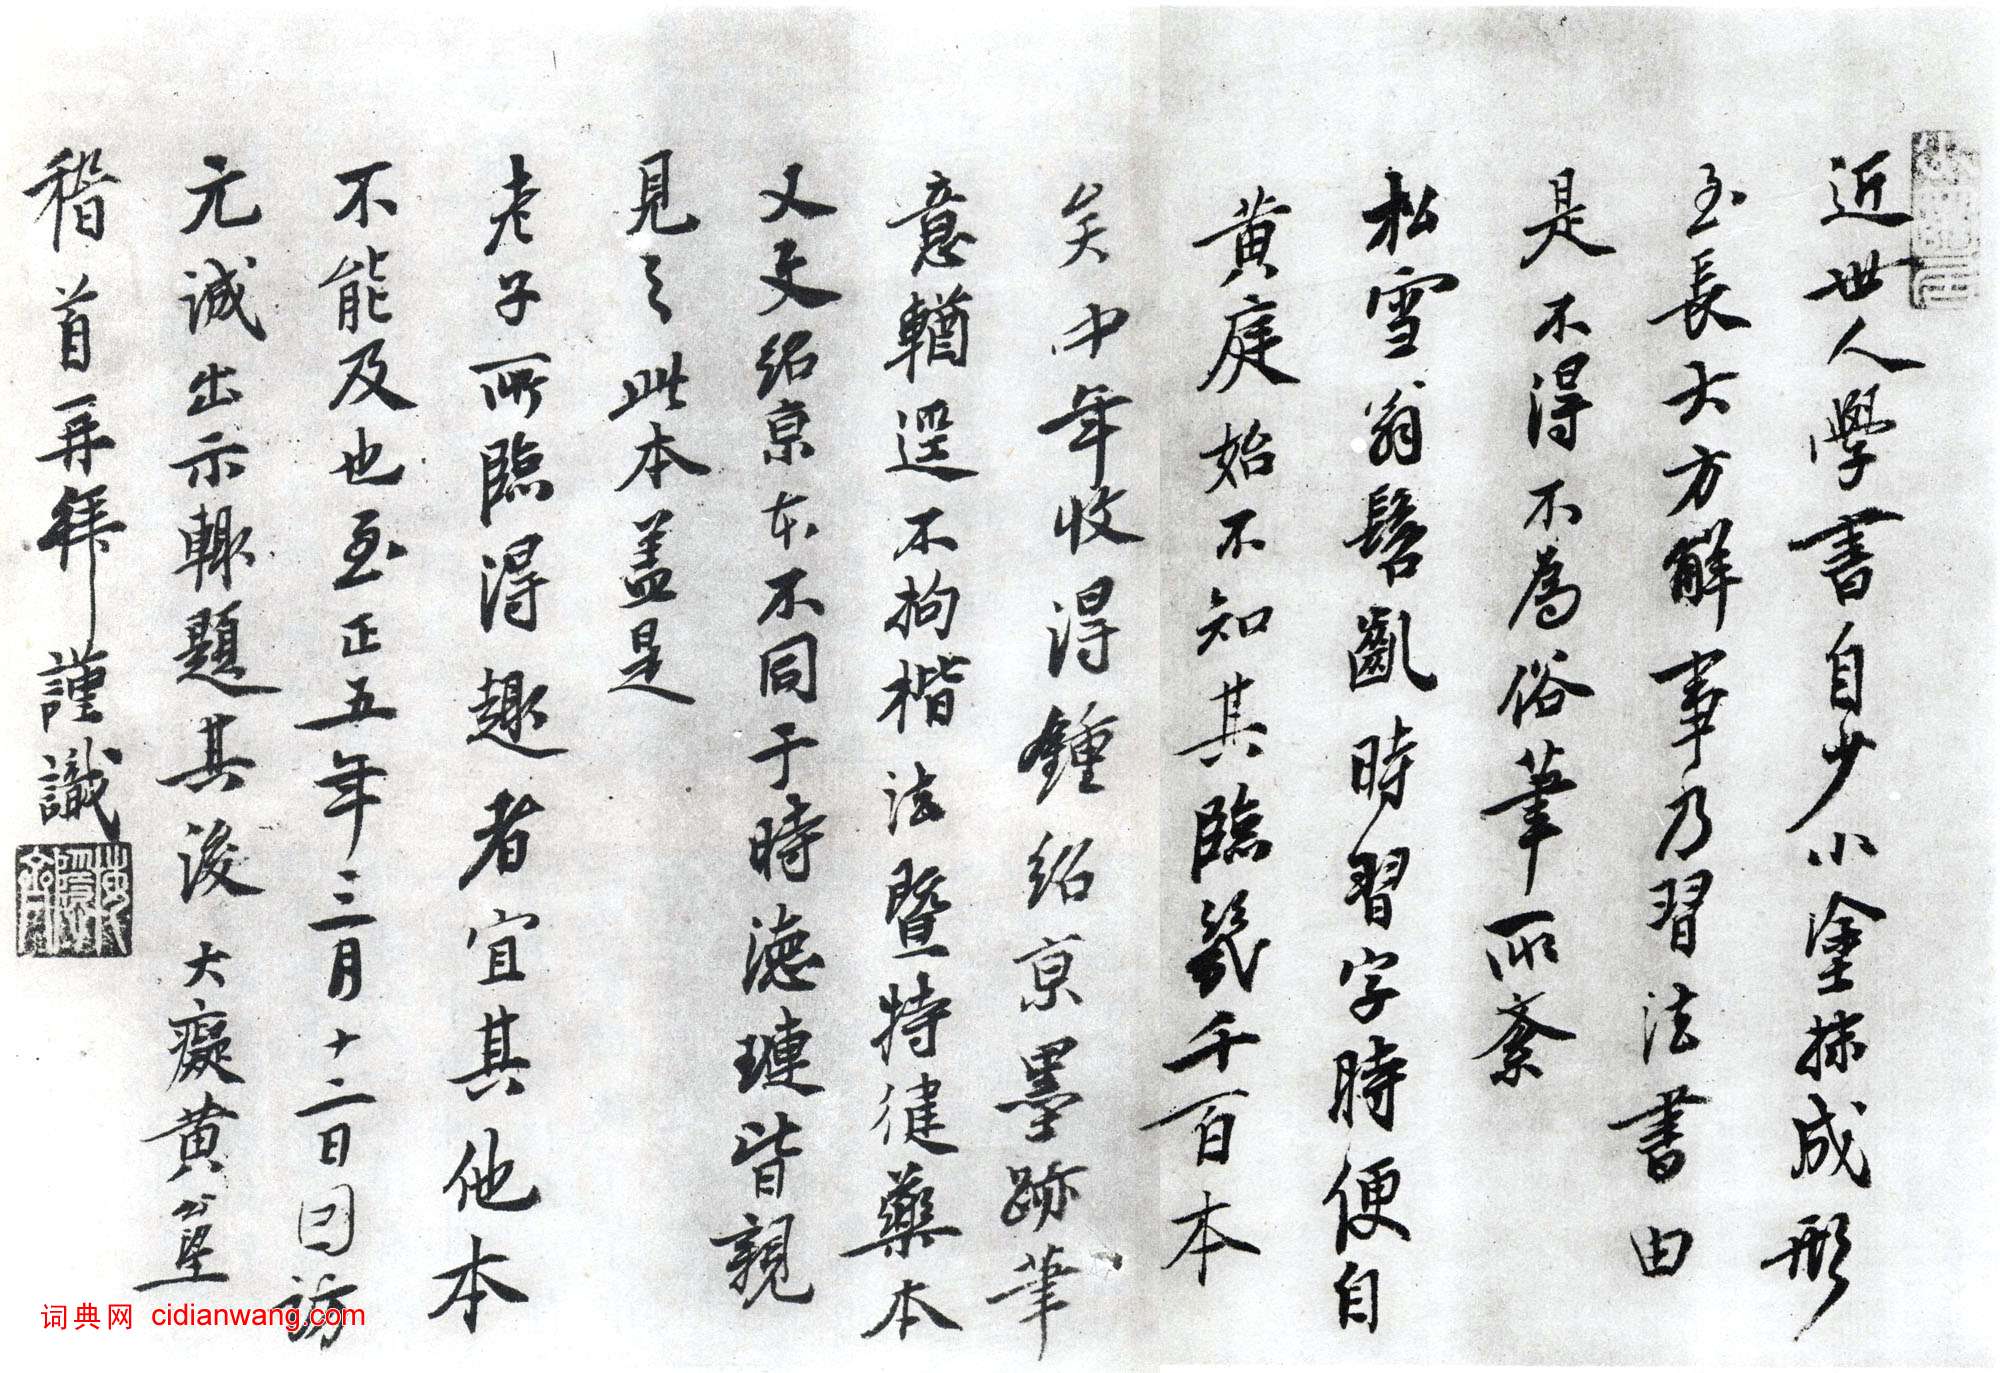 近世人學書自少小塗抹成形
至長大方解事乃習法書由
是不得不為俗筆所紊
松雪翁髫齓時習字時便自
黃庭始不知其臨幾千百本
矣中年收得鍾紹京墨跡筆
意輶逕不拘楷法暨特健藥本
又是紹京本不同于時德璉皆親
見之此本盖是
老子所臨得趣者宜其他本
不能及也至正五年三月十二日因訪
元誠出示輙題其後大癡黃公望
稽首再拜謹識
词典网 cidianwang.com